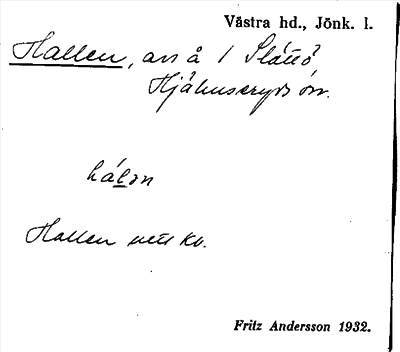 Västra hd., Jönk. l.
Hallen, avs å 1 Slättö
Hjälmseryds sn.
hálən
Hallen urk.
Fritz Andersson 1932.